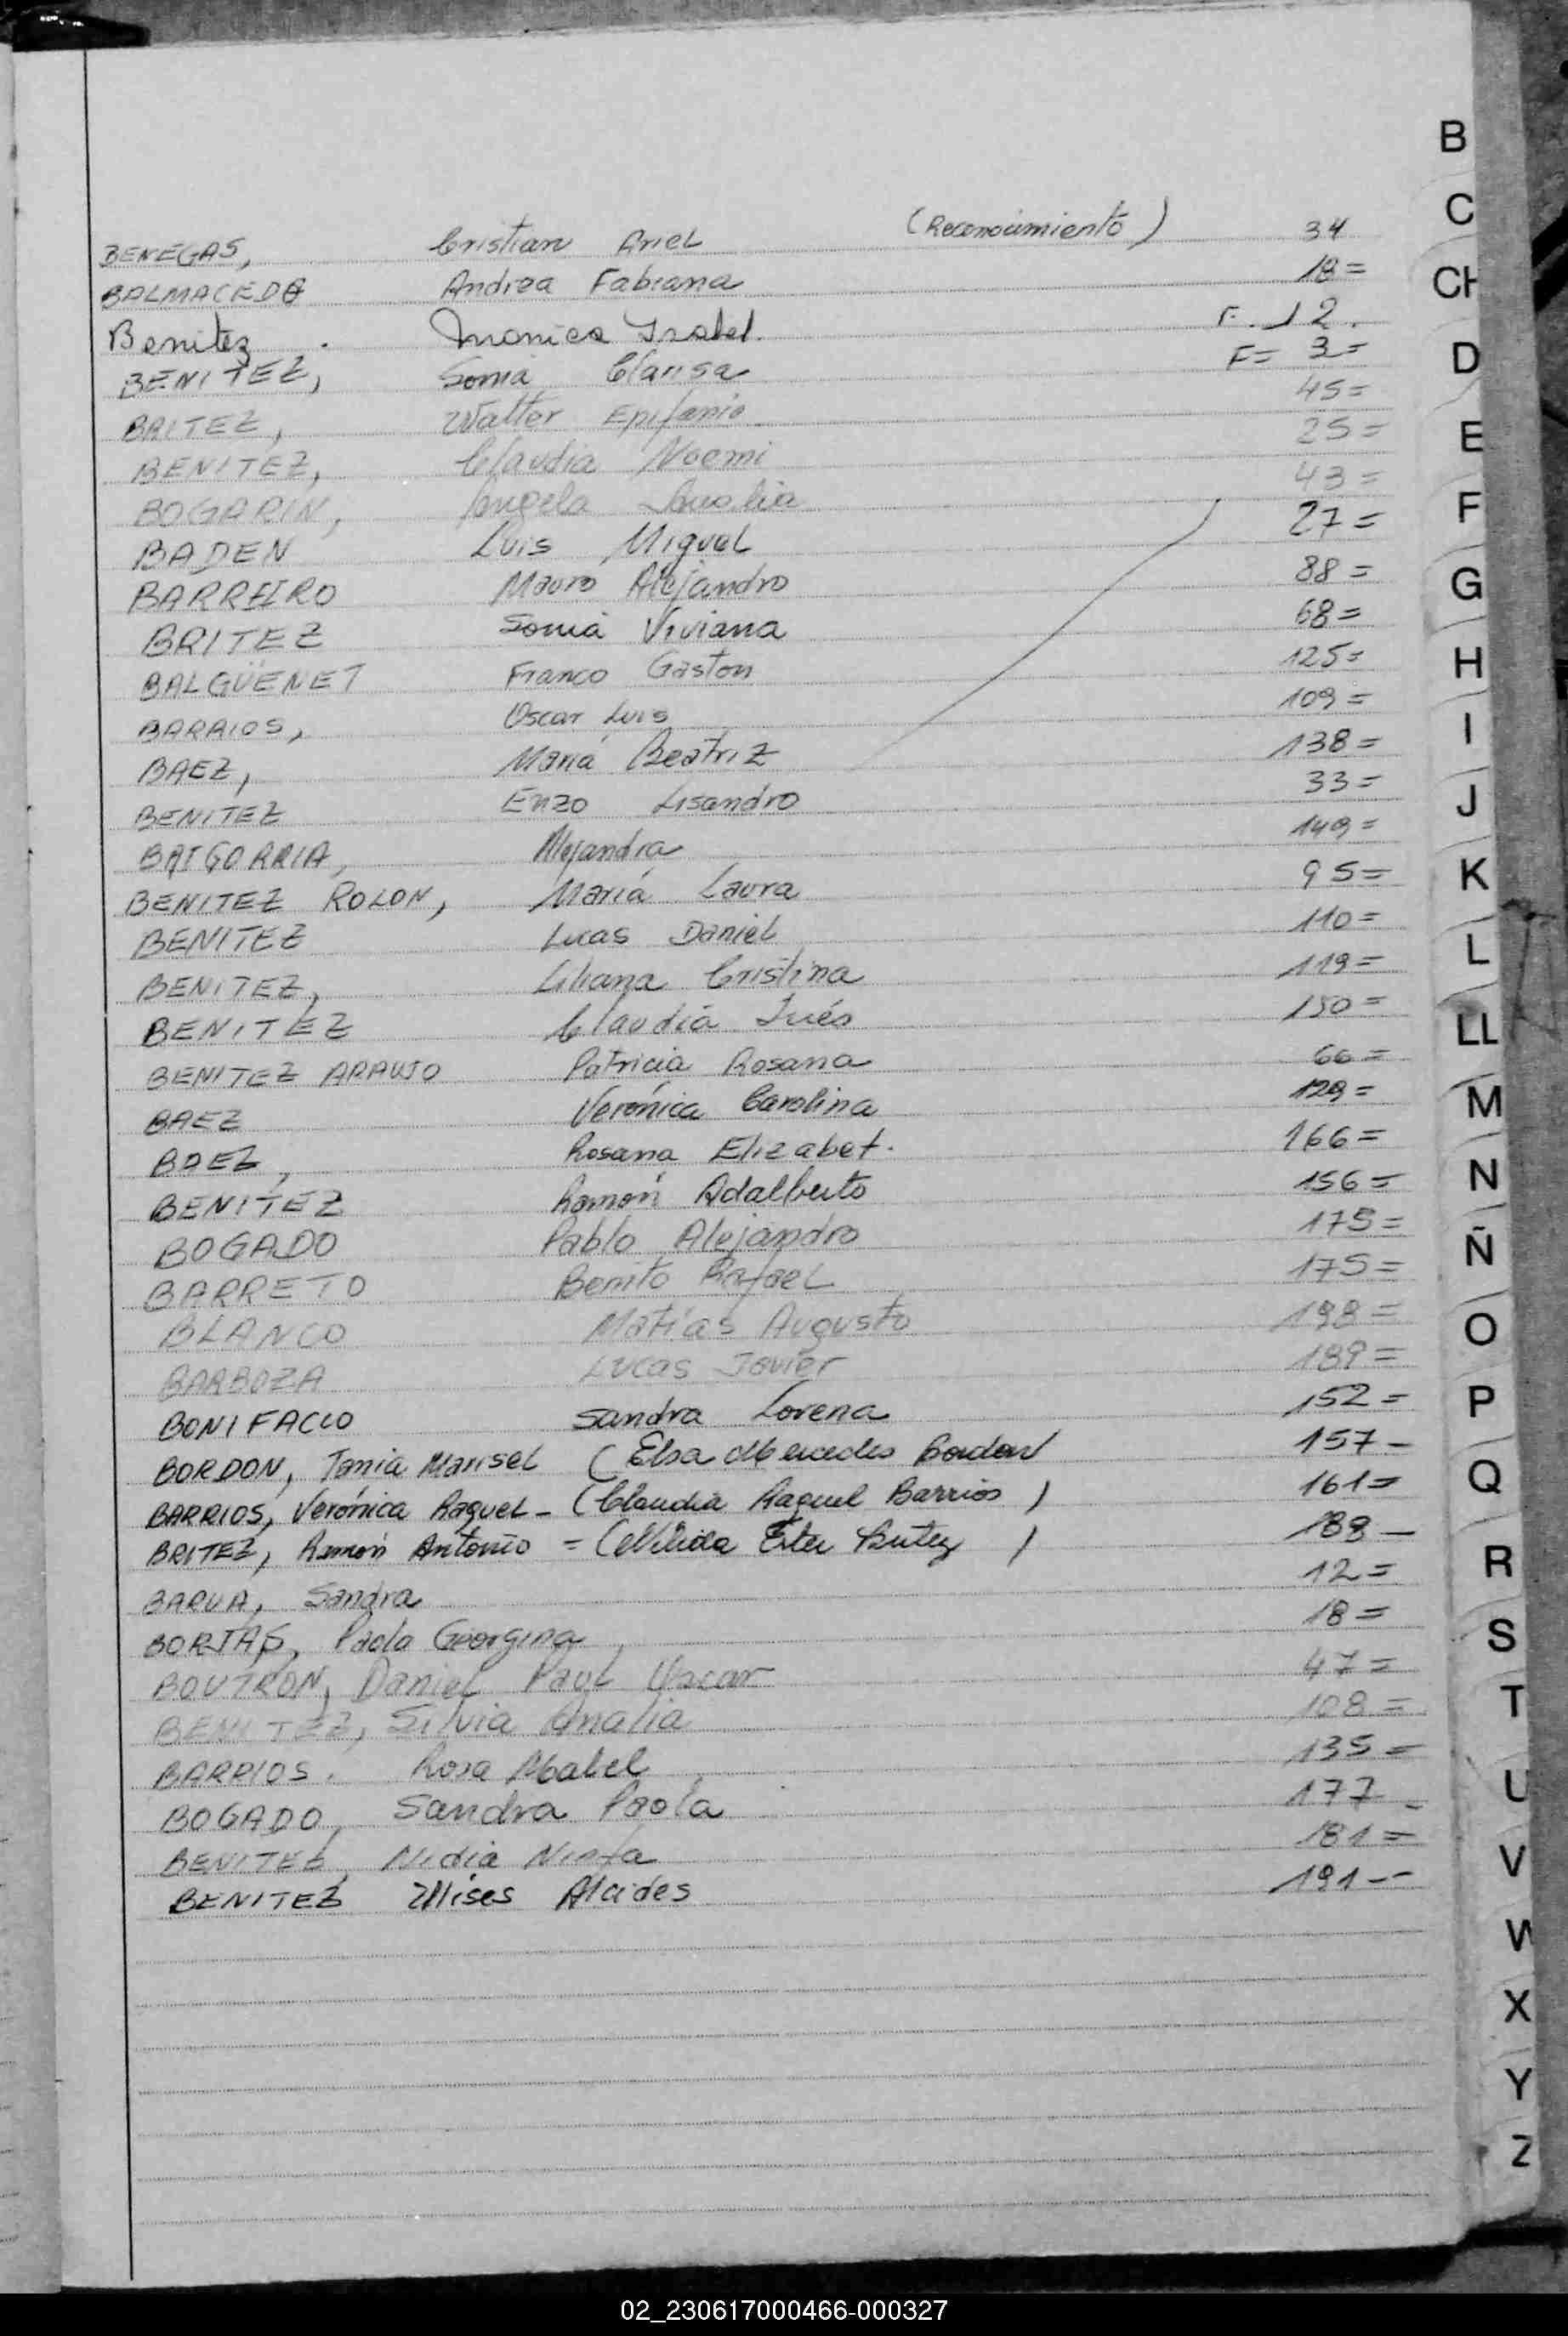 BENEGAS, Cristian Ariel (Reconocimiento) 34
BALMACEDA Andrea Fabiana 18=
Benitez Monica Isabel. F. 12.
BENITEZ, Sonia Clarisa F= 3=
BRITEZ, Walter Epifanio 45=
BENITEZ, Claudia Noemi 25=
BOGARIN, Angela 43=
BADEN Luis Miguel 27=
BARREIRO Mauro Alejandro 88=
BRITEZ Sonia Viviana 68=
BALGÜENET Franco Gaston 125=
BARRIOS, Oscar Luis 109=
BAEZ, María Beatriz 138=
BENITEZ Enzo Lisandro 33=
BAIGORRIA, Alejandra 149=
BENITEZ ROLON, María Laura 95=
BENITEZ Lucas Daniel 110=
BENITEZ, Liliana Cristina 119=
BENITEZ Claudia Inés 150=
BENITEZ ARAUJO Patricia Rosana 66=
BAEZ Verónica Carolina 129=
BAEZ, Rosana Elizabet. 166=
BENITEZ Ramón Adalberto 156=
BOGADO Pablo Alejandro 175=
BARRETO Benito Rafael 175=
BLANCO Matías Augusto 198=
BARBOZA Lucas Javier 189=
BONIFACIO Sandra Lorena 152=
BORDON, Tania Marisel (Elsa Mercedes Bordon) 157-
BARRIOS, Verónica Raquel - (Claudia Raquel Barrios) 161=
BRITEZ, Ramón Antonio = (Nélida Ester Britez) 188-
BARUA, Sandra 12=
BORJAS, Paola Georgina 18=
BOUTRON, Daniel Paul Oscar 47=
BENITEZ, Silvia Analia 108=
BARRIOS. Rosa Mabel 135=
BOGADO, Sandra Paola 177-
BENITEZ, Nidia Ninfa 181=
BENITEZ Ulises Alcides 191--
B
C
CH
D
E
F
G
H
I
J
K
L
LL
M
N
Ñ
O
P
Q
R
S
T
U
V
W
X
Y
Z
02_230617000466-000327